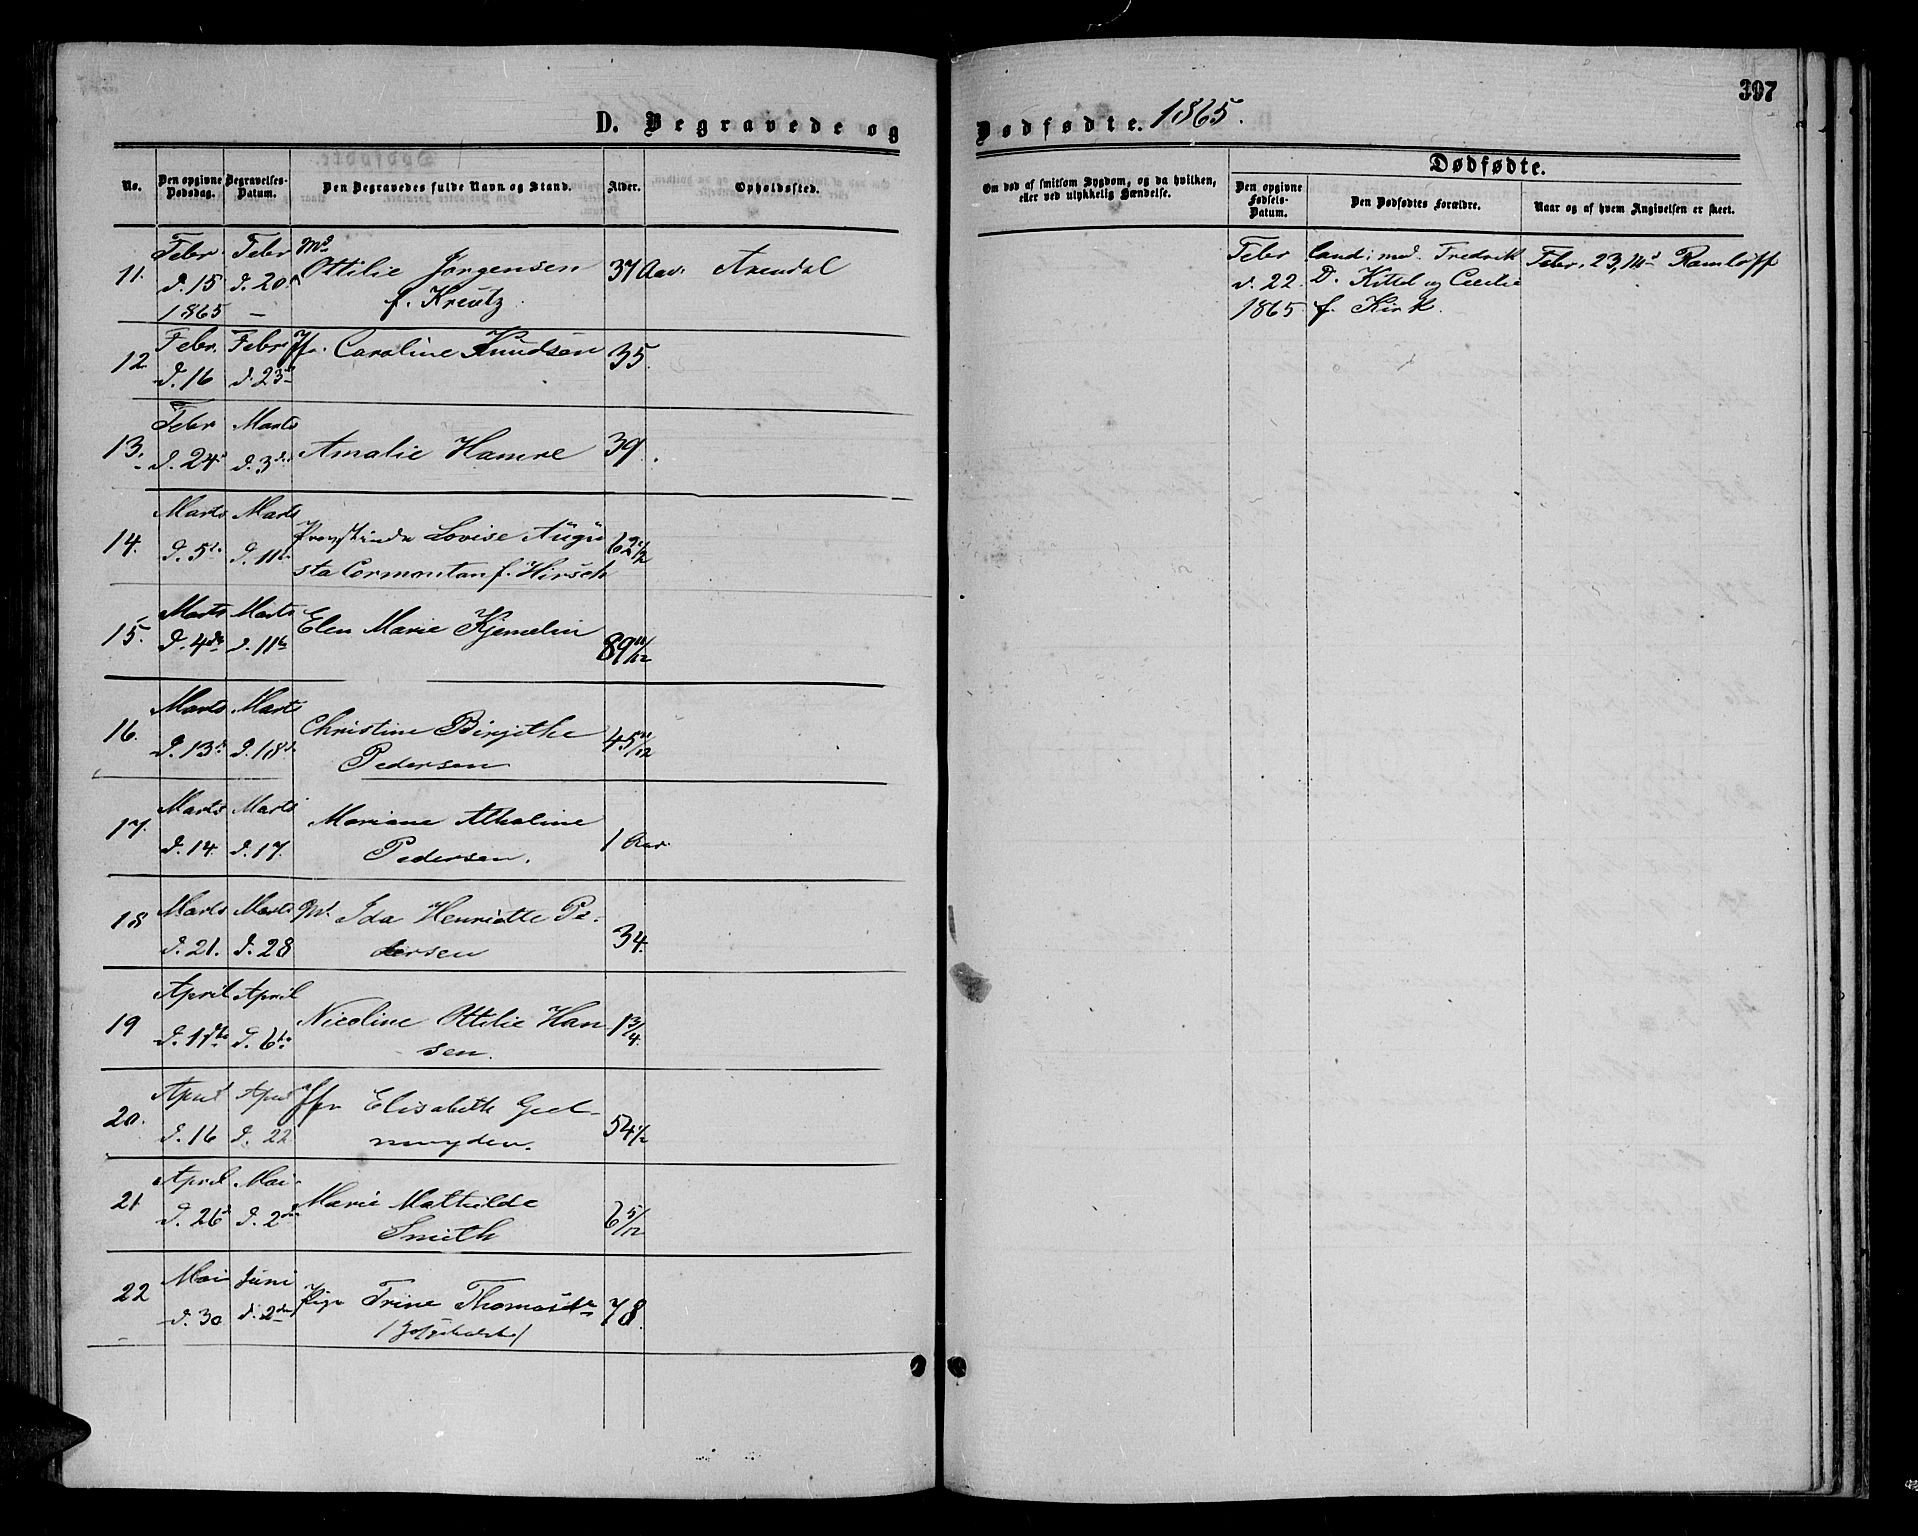 397
D. Begravede og Dødfødte. 1865.
No. Den opgivne Dødsdag. Begravelses-Datum. Den Begravedes fulde Navn og Stand. Alder. Opholdssted.
Om død af smitsom Sygdom, og da hvilken, eller ved ulykkelig Hændelse.
Dødfødte.
Den opgivne Fødsels-Datum. Den Dødfødtes Forældre. Naar og af hvem Angivelsen er skeet.
11. Febr. Febr Md
d. 15 d. 20 Ottilie Jørgensen 37 Aar. Arendal
1865 — f. Kreutz.
Febr Cand: med. Fredrik Febr. 23, 14d Ramløff
d. 22. D. Kittel og Cecilie
1865. f. Kirk.
12 Febr. Febr Jfr. Caroline Knudsen 35.
d. 16 d. 23d
13. Febr Marts
d. 24d d. 3de Amalie Hamre 39.
14. Marts Marts
d. 5te d. 11te Provstinde Lovise Augu 62 1/2
sta Cormontan f. Hirsch
15. Marts Marts Elen Marie Kjemelin
d. 4de d. 11te 89 11/12
16. Marts Marts
d. 13de d. 18de Christine Birgithe 45 11/12
Pedersen
17. Marts Marts
d. 14. d. 17. Mariane Athaline 1 Aar.
Pedersen.
18 Marts Marts Md. Ida Henriette Pe-
d. 21. d. 28 dersen 34.
19 April April
d. 1ste d. 6te Nicoline Ottilie Han 1 3/4.
sen.
20. April April Jfr Elisabeth Geel-
d. 16 d. 22 muyden. 54 1/2
21 April Mai
d. 26d d. 2den Marie Mathilde 6 5/12
Smith
22 Mai Juni
d. 30 d. 2den Pige Trine Thomasdr 78.